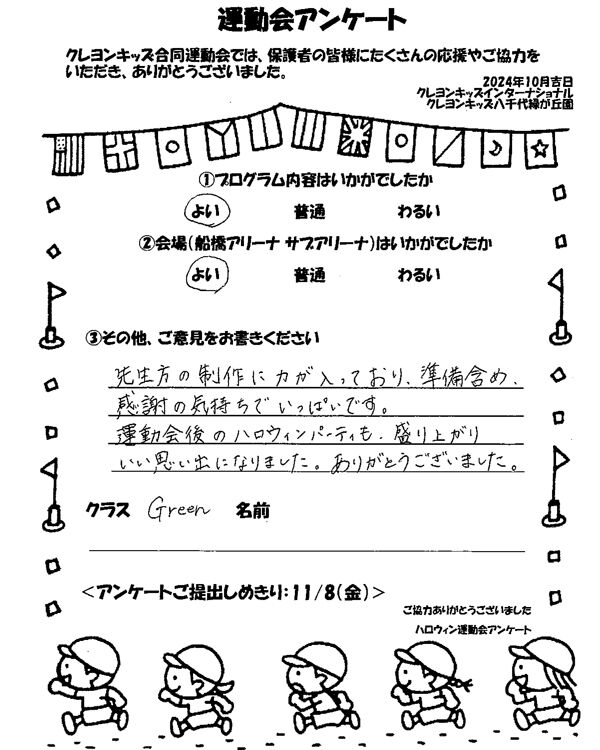 運動会アンケート
クレヨンキッズ合同運動会では、保護者の皆様にたくさんの応援やご協力を
いただき、ありがとうございました。
2024年10月吉日
クレヨンキッズインターナショナル
クレヨンキッズ八千代緑が丘園
①プログラム内容はいかがでしたか
よい 普通 わるい
②会場(船橋アリーナ サブアリーナ)はいかがでしたか
よい 普通 わるい
③その他、ご意見をお書きください
先生方の制作に力が入っており、準備含め、
感謝の気持ちでいっぱいです。
運動会後のハロウィンパーティも、盛り上がり
いい思い出になりました。ありがとうございました。
クラス Green 名前
<アンケートご提出しめきり:11/8(金)>
ご協力ありがとうございました
ハロウィン運動会アンケート